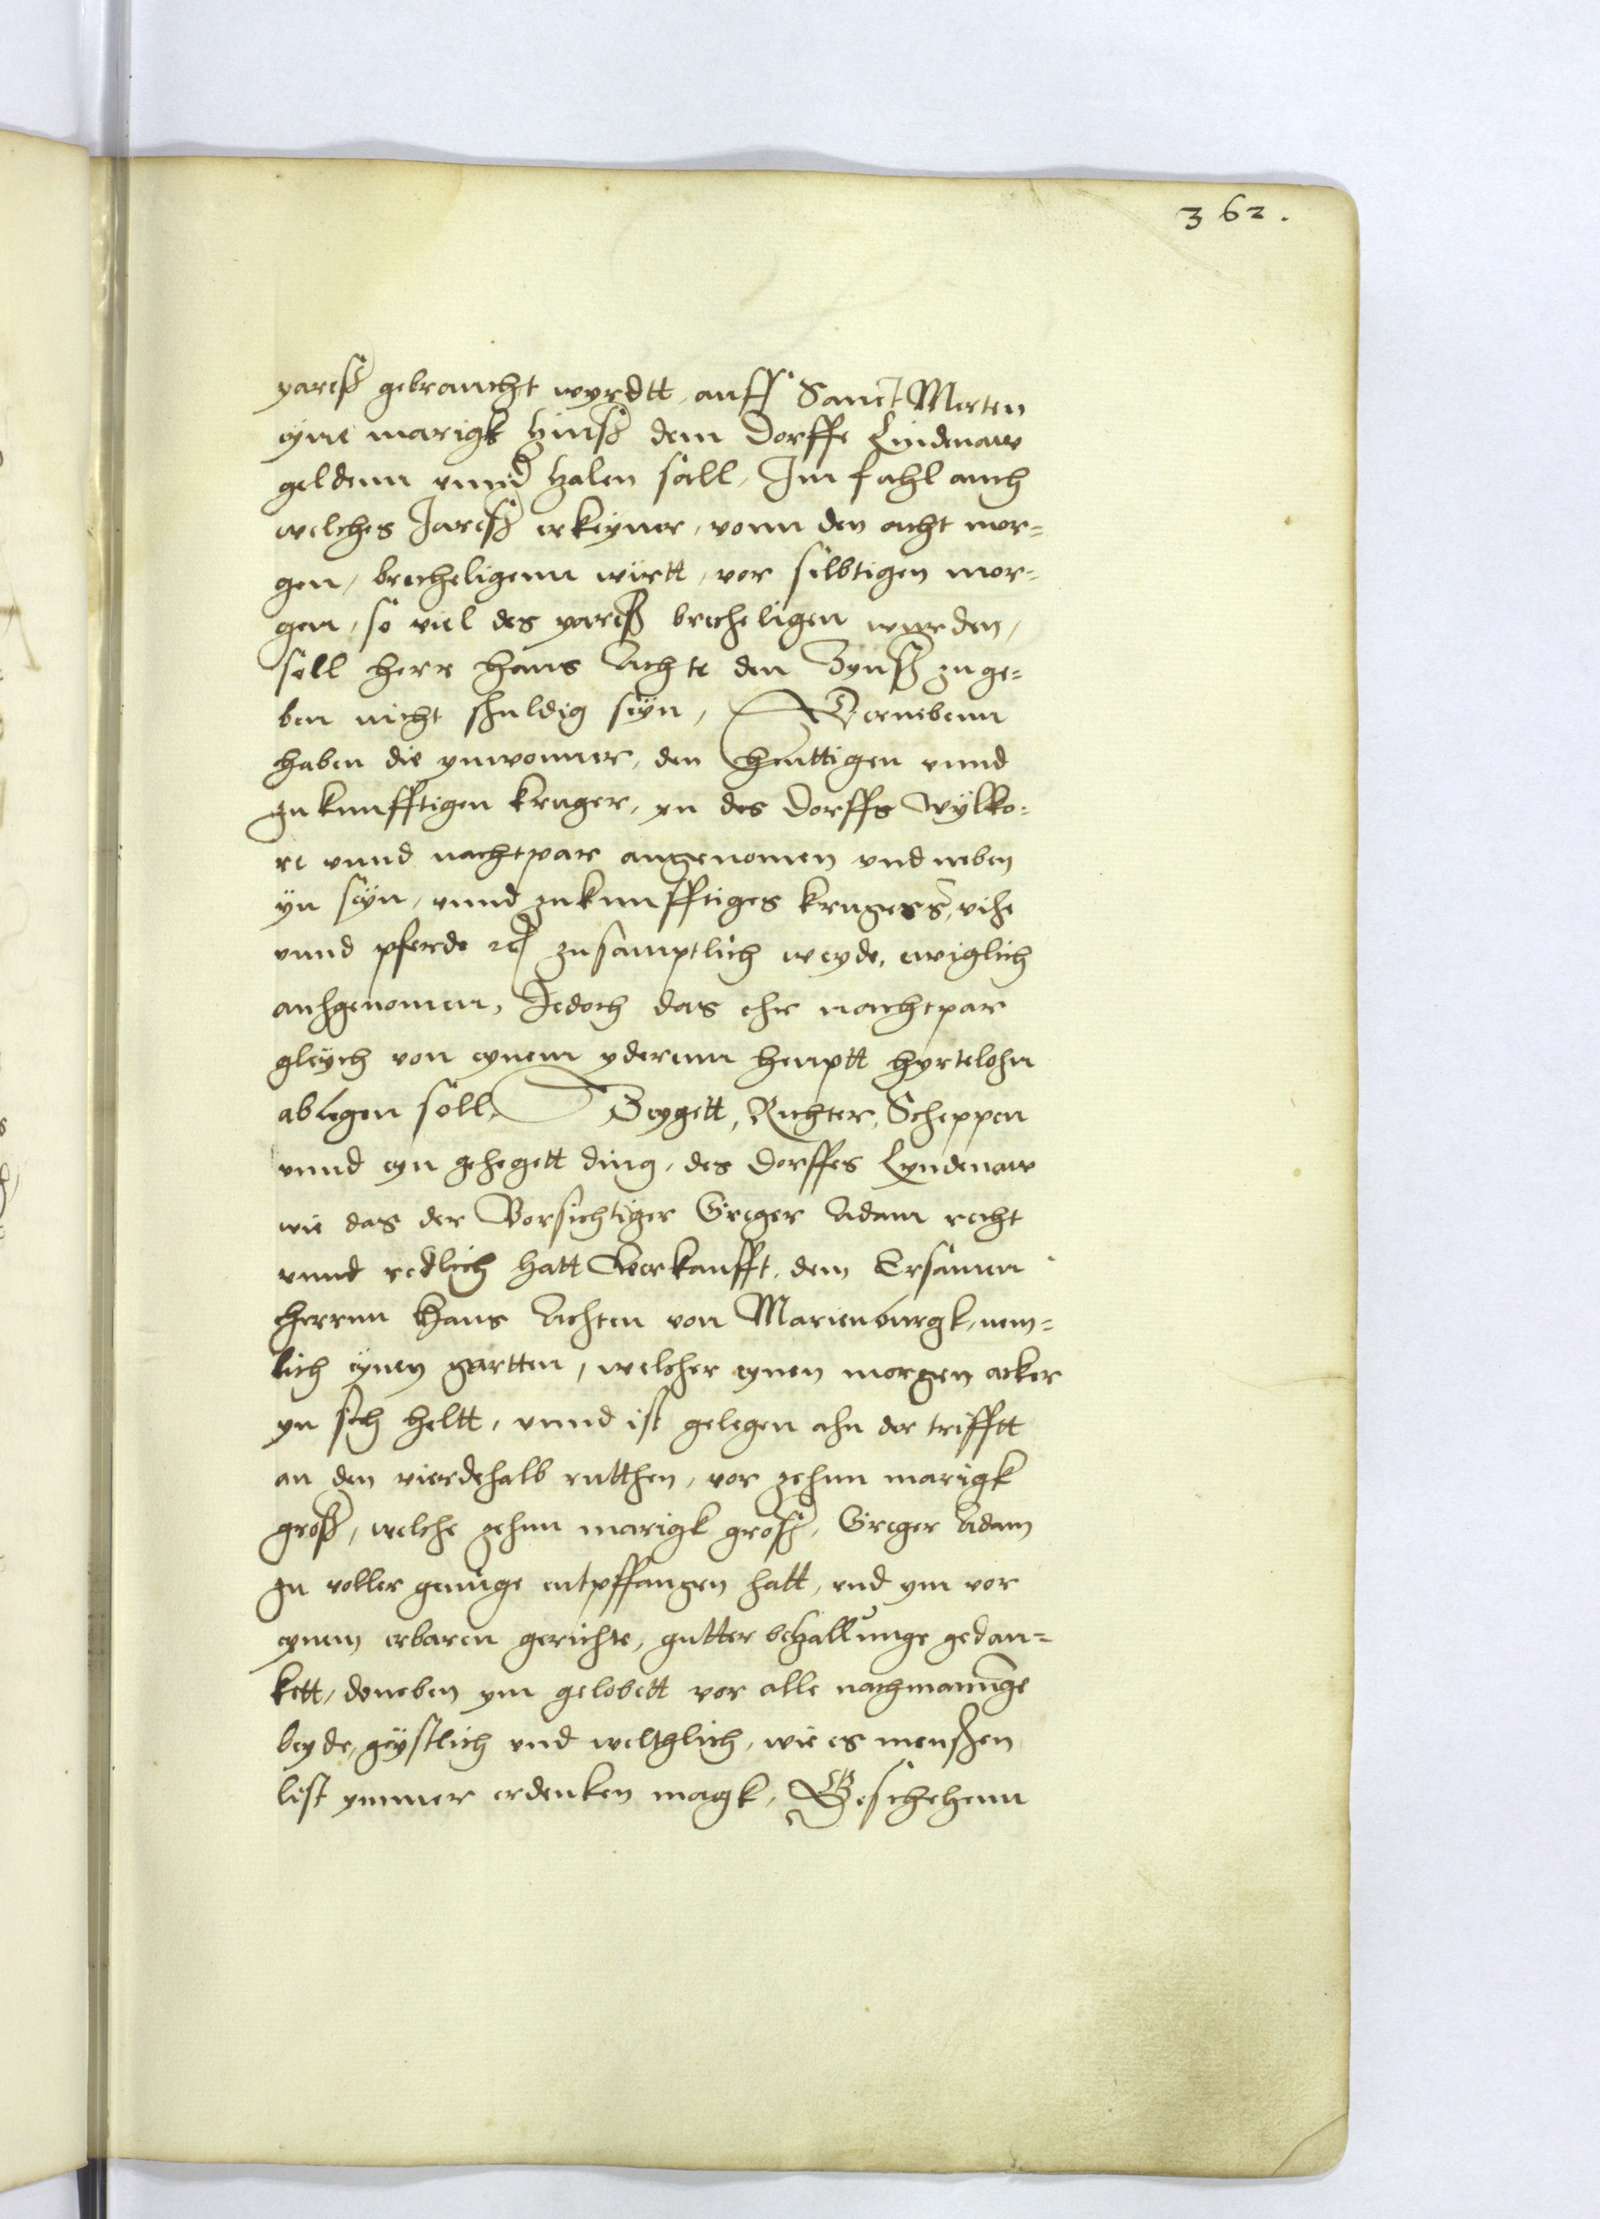 362.
yareß gebraucht wyrdtt, auff Sanct Merten
eyne marigk tzinß dem Dorffe Lindenaw
geldenn vnnd tzalen sall, Im fahl auch
welches Jareß erkeyner, vonn den acht mor=
gen, becheligenn württ, vor silbtigen mor=
gen, so viel des yareß becheligen wurden,
soll herr Hans Achte den Zynß zu ge=
ben nicht schuldig seyn, Dernebenn
haben die ynwonner, den heuttigen vnnd
zukunfftigen kruger, yn des Dorffs wylko=
re vnnd nachtpar angenomen vnd neben
yn seyn, vnnd zukunfftiges krugers, vihe
vnnd pferde zusamptlich weyde, ewiglich
auffgenomen, Jedoch das ehr nachtpar
gleych von eynem yderenn heuptt hyrtelohn
ablegen soll. Zeygett, Richter, Scheppen
vnnd eyn gehegett ding, des Dorffes Lyndenaw
wie das der Vorsichtiger Greger Adam recht
vnnd redlich hatt Verkaufft, dem Ersamen
herrnn Hans Achten von Marienburgk, nem=
lich eynen gartten, welcher eynen morgen acker
yn sich heltt, vnnd ist gelegen ahn der trifftt
an den vierdehalb rutthen, vor zehnn marigk
groß, welche zehnn marigk groß, Greger Adam
zu voller genuge entpffangen hatt, vnd ym vor
eynem erbaren gerichte, gutter betzallunge gedan=
kett, doneben ym gelobett vor alle nachmanunge
beyde, geystlich vnd welthlich, wie es menschen
list ymmer erdenken magk, Geschehenn